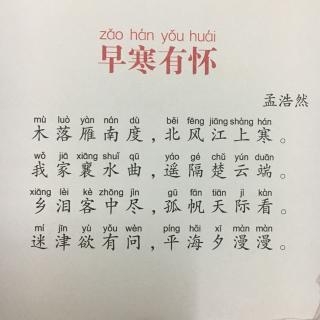 zǎo hán yǒu huái
早寒有怀
孟浩然
mù luò yàn nán dù běi fēng jiāng shàng hán
木落雁南度，北风江上寒。
wǒ jiā xiāng shuǐ qū yáo gé chǔ yún duān
我家襄水曲，遥隔楚云端。
xiāng lèi kè zhōng jìn gū fān tiān jì kàn
乡泪客中尽，孤帆天际看。
mí jīn yù yǒu wèn píng hǎi xī màn màn
迷津欲有问，平海夕漫漫。